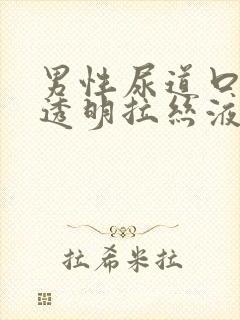 男性尿道口
透明拉丝液
拉希米拉